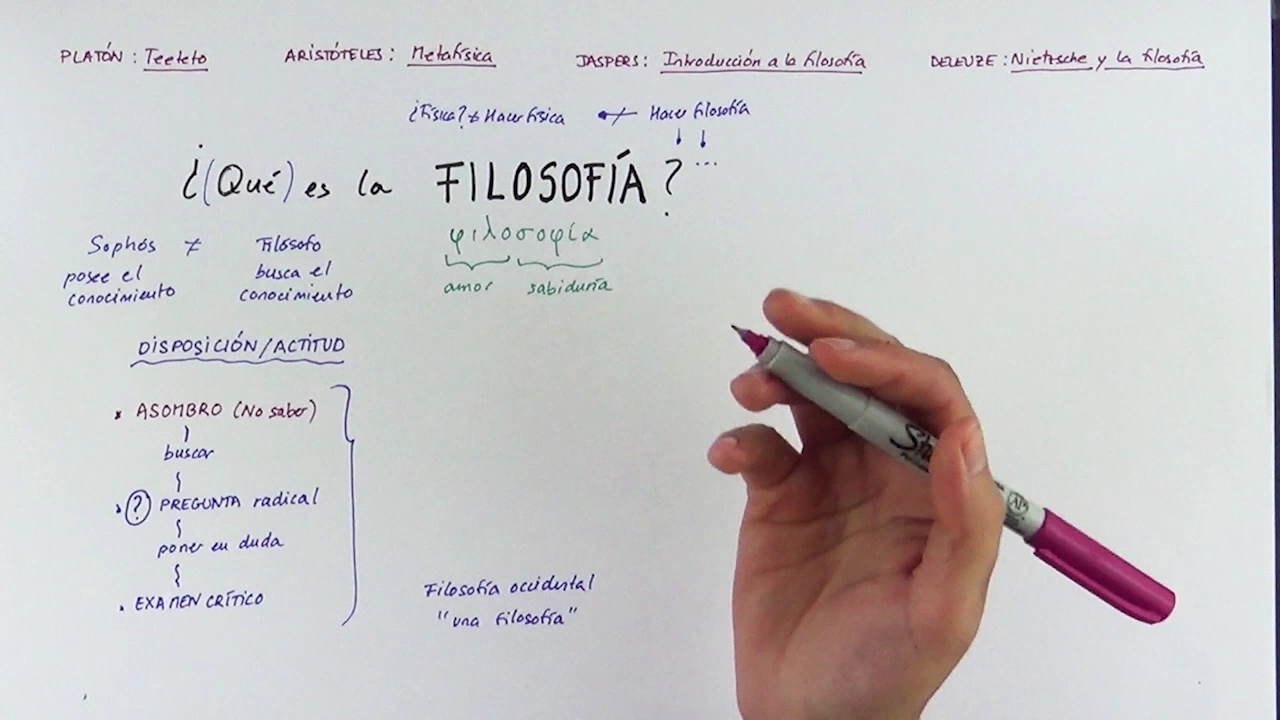 PLATÓN : Teeteto
ARISTÓTELES : Metafísica
JASPERS : Introducción a la filosofía
DELEUZE : Nietzsche y la filosofía
¿Física? ≠ Hacer física
Hacer filosofía
...
¿(Qué) es la FILOSOFÍA?
φιλοσοφία
amor sabiduría
Sophós ≠ Filósofo
posee el conocimiento
busca el conocimiento
DISPOSICIÓN/ACTITUD
ASOMBRO (No saber)
buscar
? PREGUNTA radical
poner en duda
EXAMEN CRÍTICO
Filosofía occidental
"una filosofía"